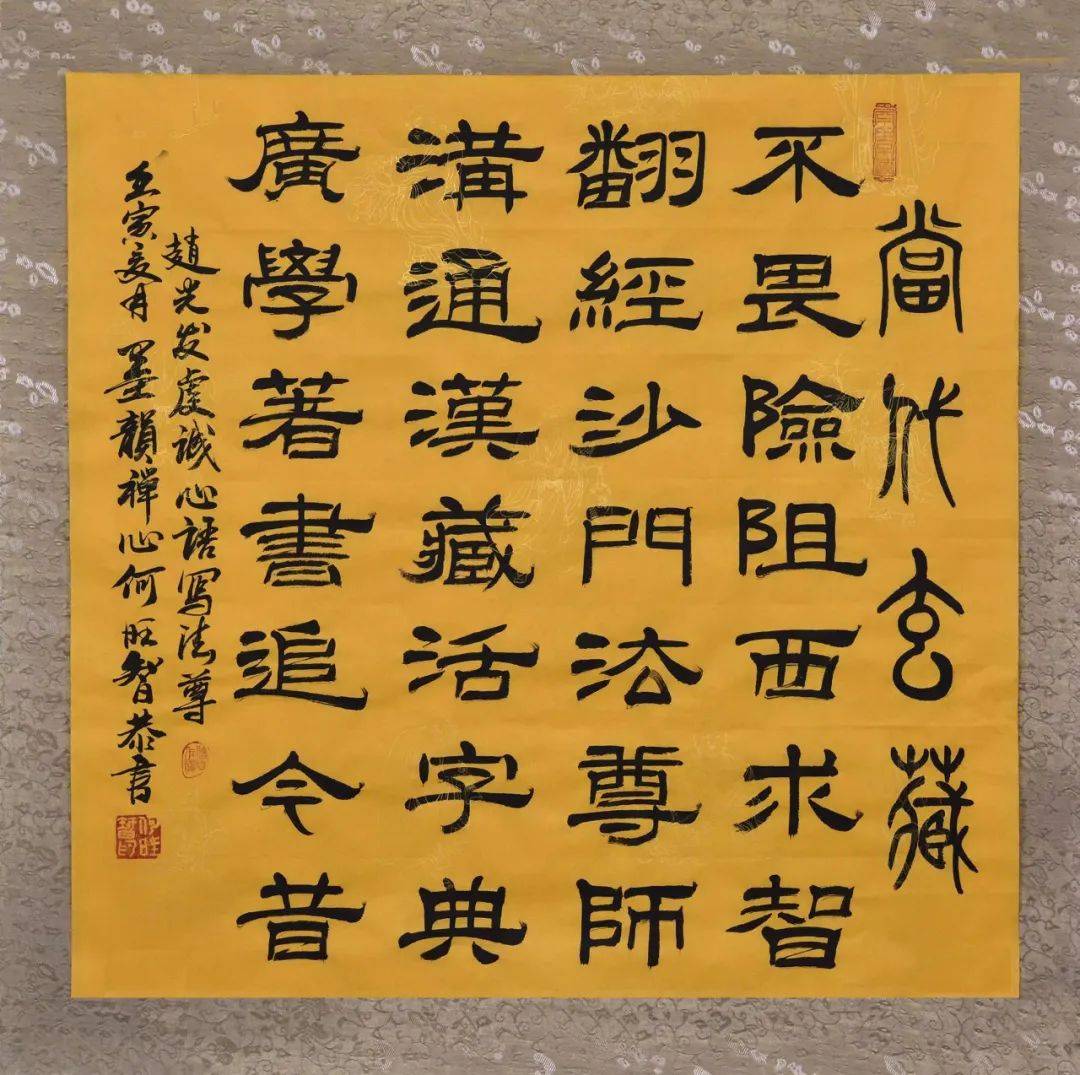 當代玄藏
不畏險阻西求智
翻經沙門法尊師
溝通漢藏活字典
廣學著書追今昔
趙光发虔誠心語写法尊
壬寅夏月墨韻禪心何旺智恭書